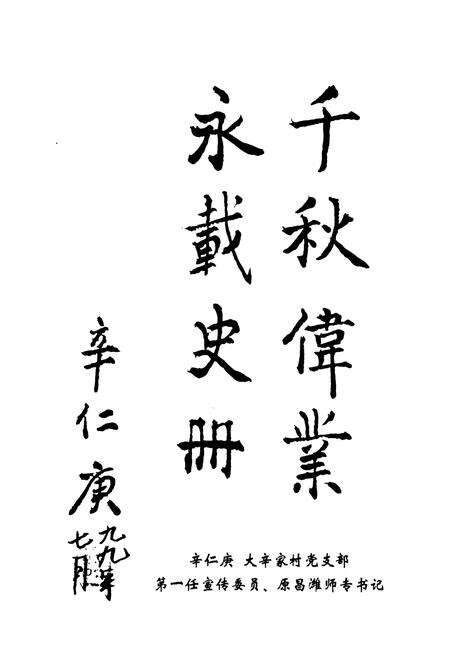 千秋偉業
永載史冊
辛仁庚
九九年
七月
辛仁庚 大辛家村党支部
第一任宣传委员、原昌潍师专书记